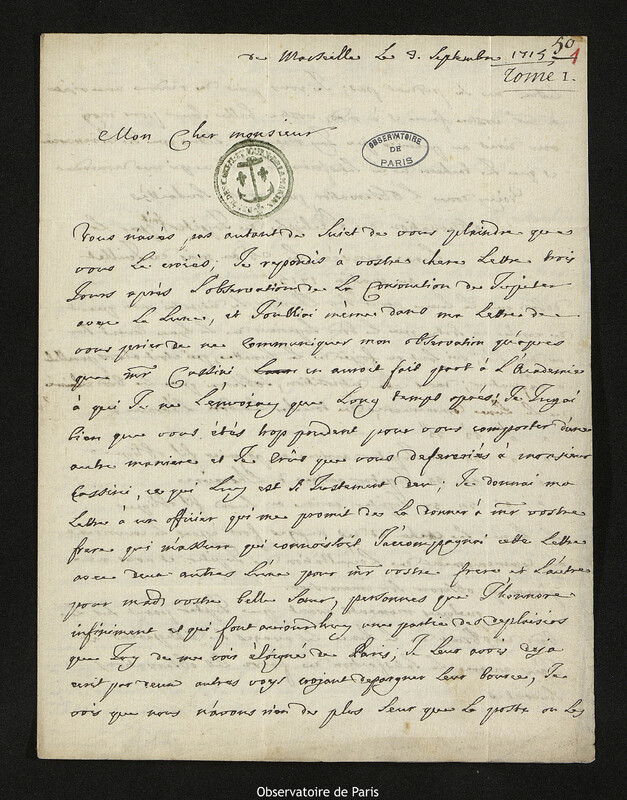 de Marseille le 3. Septembre 1715
50
1
Tome 1.
Mon Cher monsieur
OBSERVATOIRE
DE
PARIS
Vous n'avés pas autant de sujet de vous plaindre que
vous le croiés; Je repondis à vostre chere Lettre trois
Jours aprés l'observation de La Conionction de Jupiter
avec La Lune, et J'oubliai même dans ma Lettre de
vous prier de ne Communiquer mon observation qu'apres
que mr Cassini en auroit fait part à L'Academie
à qui Je ne L'envoiay que Long temps aprés; Je Jugai
bien que vous étiés trop prudent pour vous comporter d'une
autre maniere et Je crûs que vous defereriés à monsieur
Cassini, ce qui Luy est si Justement deu; Je donnai ma
Lettre à un officier qui me promit de La donner à mr vostre
frere qui m'assura qui connoissoit J'accompagnai cette Lettre
avec deux autres L'une pour mr vostre frere et L'autre
pour made vostre belle soeur, personnes que J'honnore
infiniment et qui font aujourdhuy une partie des deplaisirs
que J'ay de me voir éloigné de Paris; Je Leur avois deja
ecrit par deux autres voys croiant depargner Leur bource, Je
vois que nous n'avons rien de plus seur que La poste ou Les
Observatoire de Paris